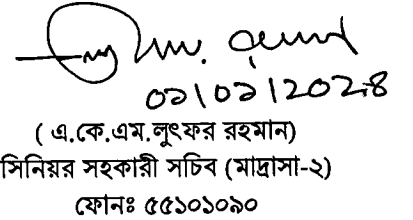 ০১|০১|2024
( এ.কে.এম.লুৎফর রহমান)
সিনিয়র সহকারী সচিব (মাদ্রাসা-২)
ফোনঃ ৫৫১০১০৯০